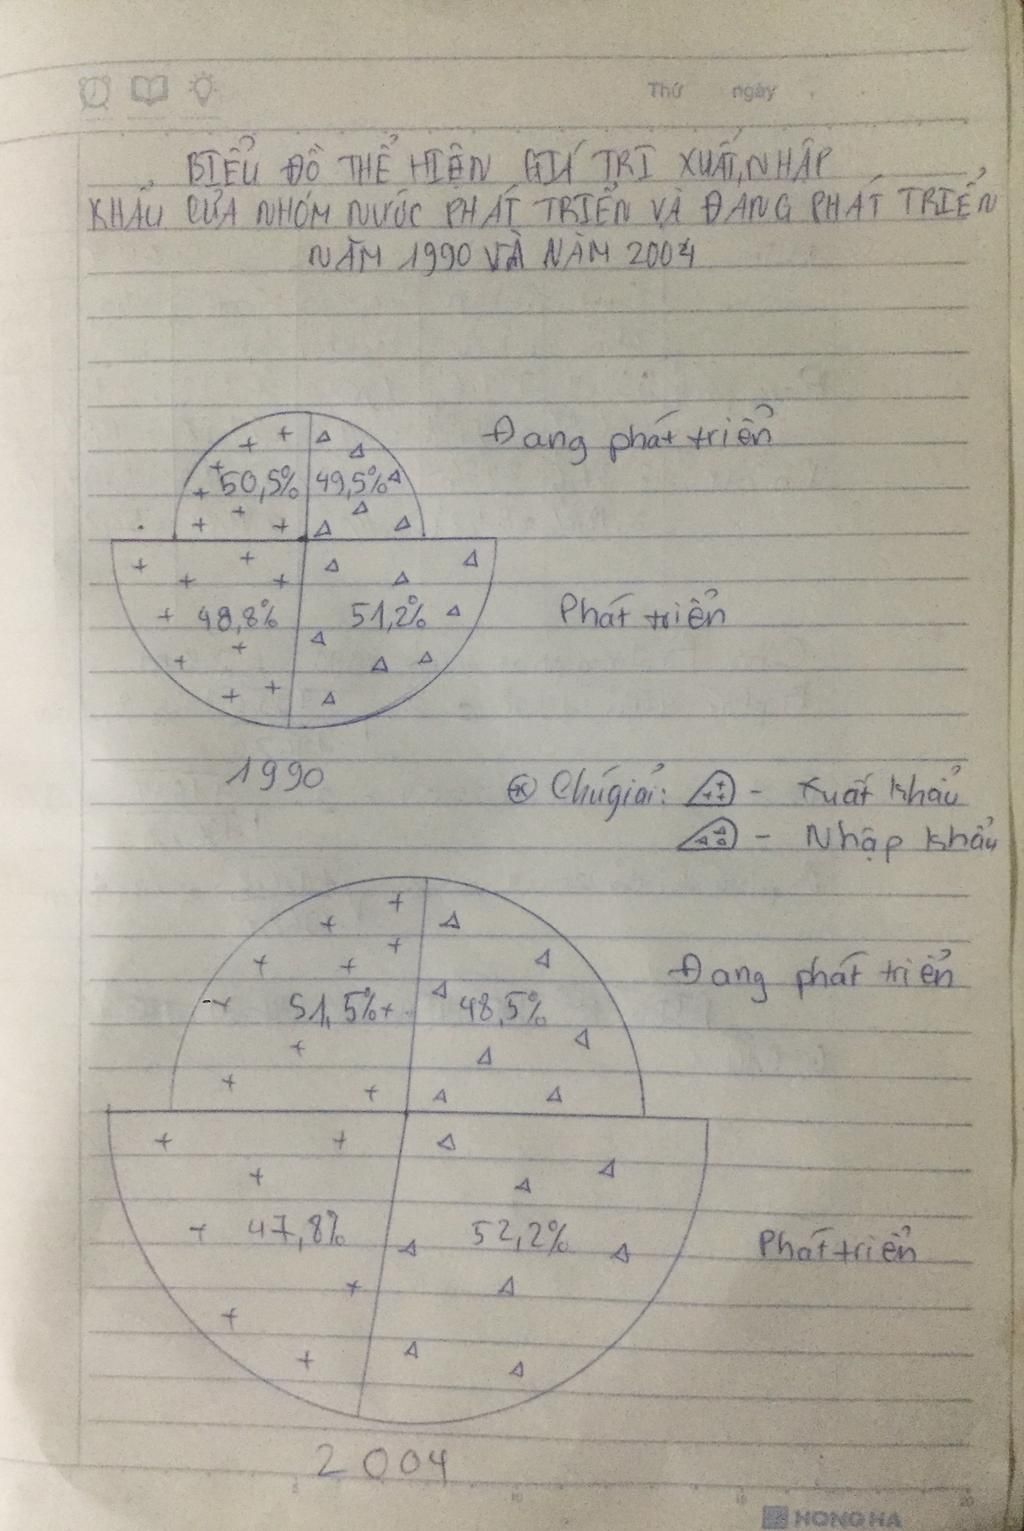 Thứ ngày
BIỂU ĐỒ THỂ HIỆN GIÁ TRỊ XUẤT, NHẬP
KHẨU CỦA NHÓM NƯỚC PHÁT TRIỂN VÀ ĐANG PHÁT TRIỂN
NĂM 1990 VÀ NĂM 2004
Đang phát triển
50,5% 49,5%
48,8% 51,2%
Phát triển
1990
Chú giải: - Xuất khẩu
- Nhập khẩu
Đang phát triển
51,5% 48,5%
47,8% 52,2%
Phát triển
2004
5 10 15 20
HONG HA